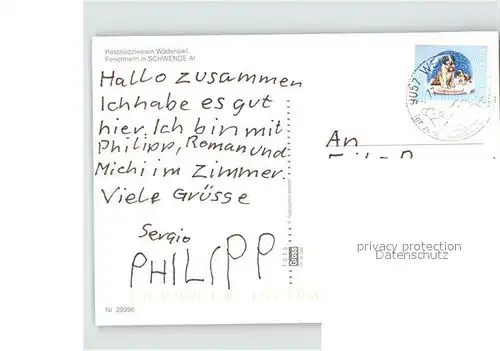 Pestalozziverein Wädenswil
Ferienheim in SCHWENDE AI
Hallo zusammen
Ich habe es gut
hier. Ich bin mit
Philipp, Roman und
Michi im Zimmer.
Viele Grüsse
Sergio
PHILIPP
An
9057
privacy protection
Datenschutz
foto
Gross
Nr. 39996